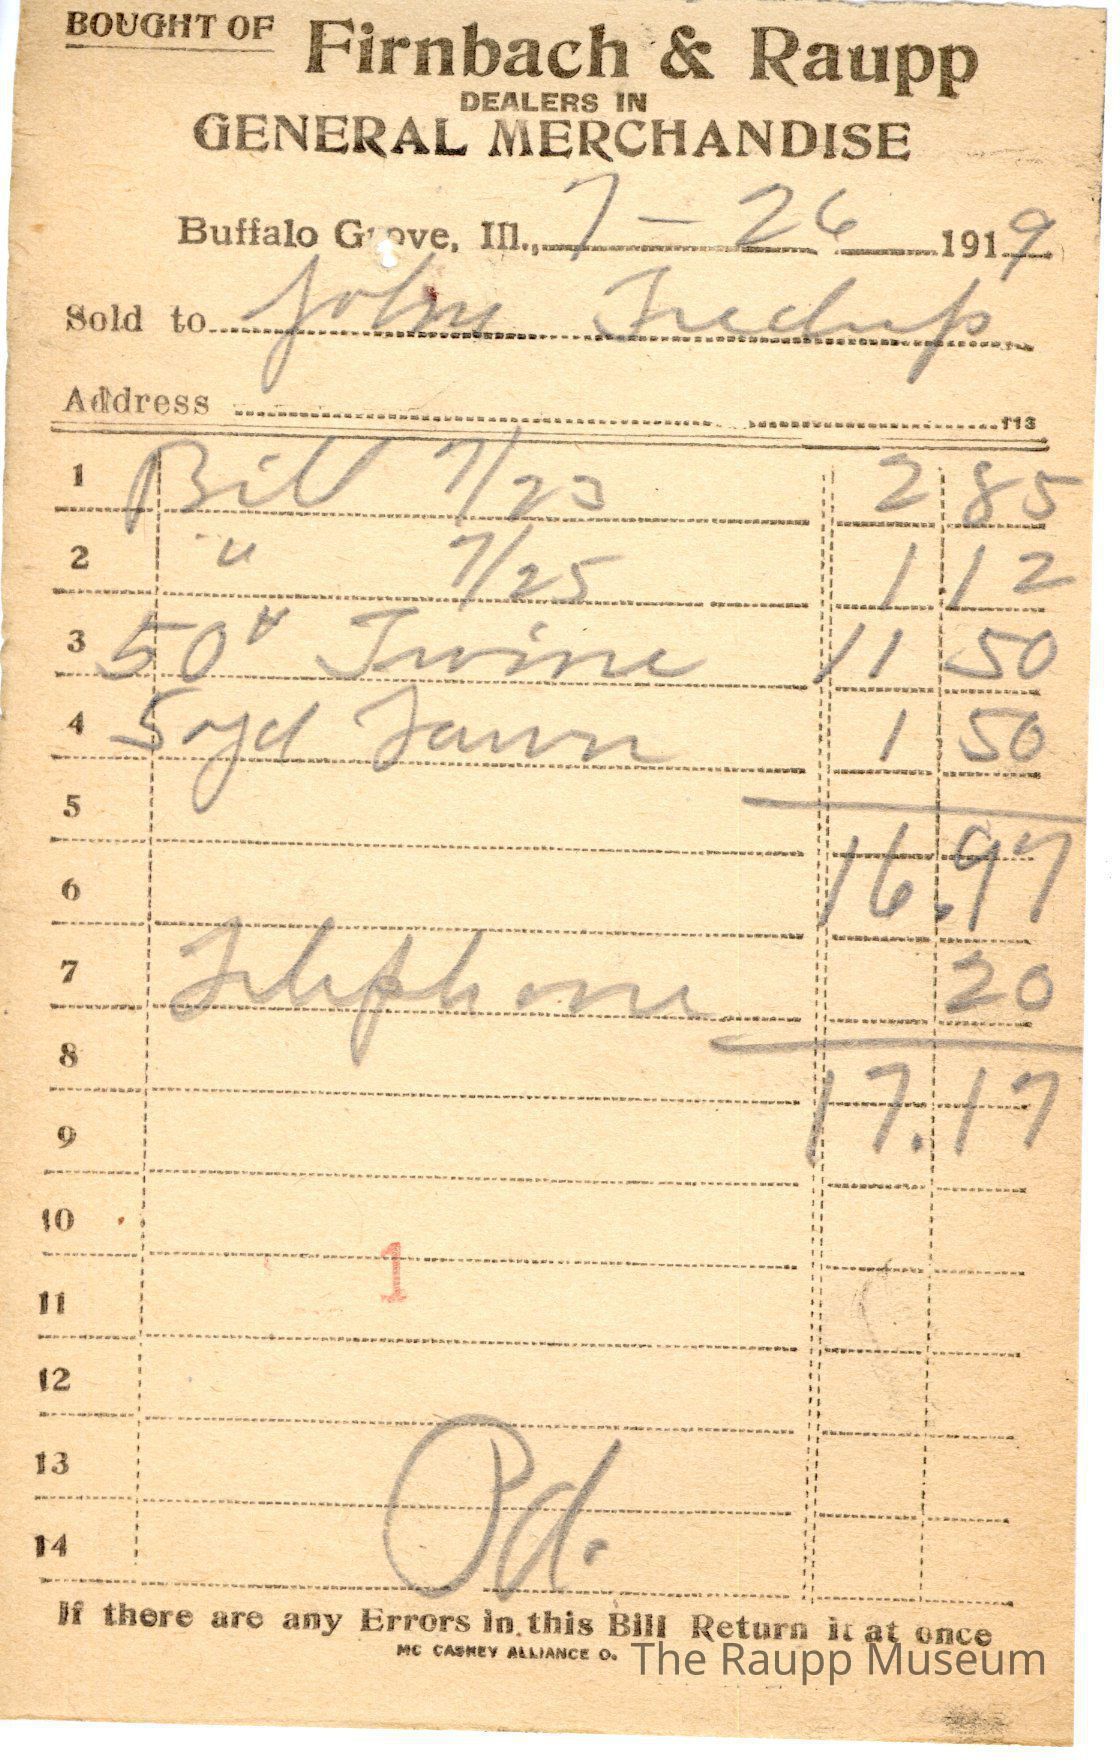 BOUGHT OF Firnbach & Raupp
DEALERS IN
GENERAL MERCHANDISE
Buffalo Grove, Ill., 7 - 26 1919
Sold to John
Address 113
1 Bill 7/23 2 85
2 " 7/25 1 12
3 50# Twine 11 50
4 5 yd Lawn 1 50
5
6 16.97
7 Telephone 20
8
9 17.17
10
1
11
12
13
Pd.
14
If there are any Errors in this Bill Return it at once
MC CASKEY ALLIANCE O.
The Raupp Museum